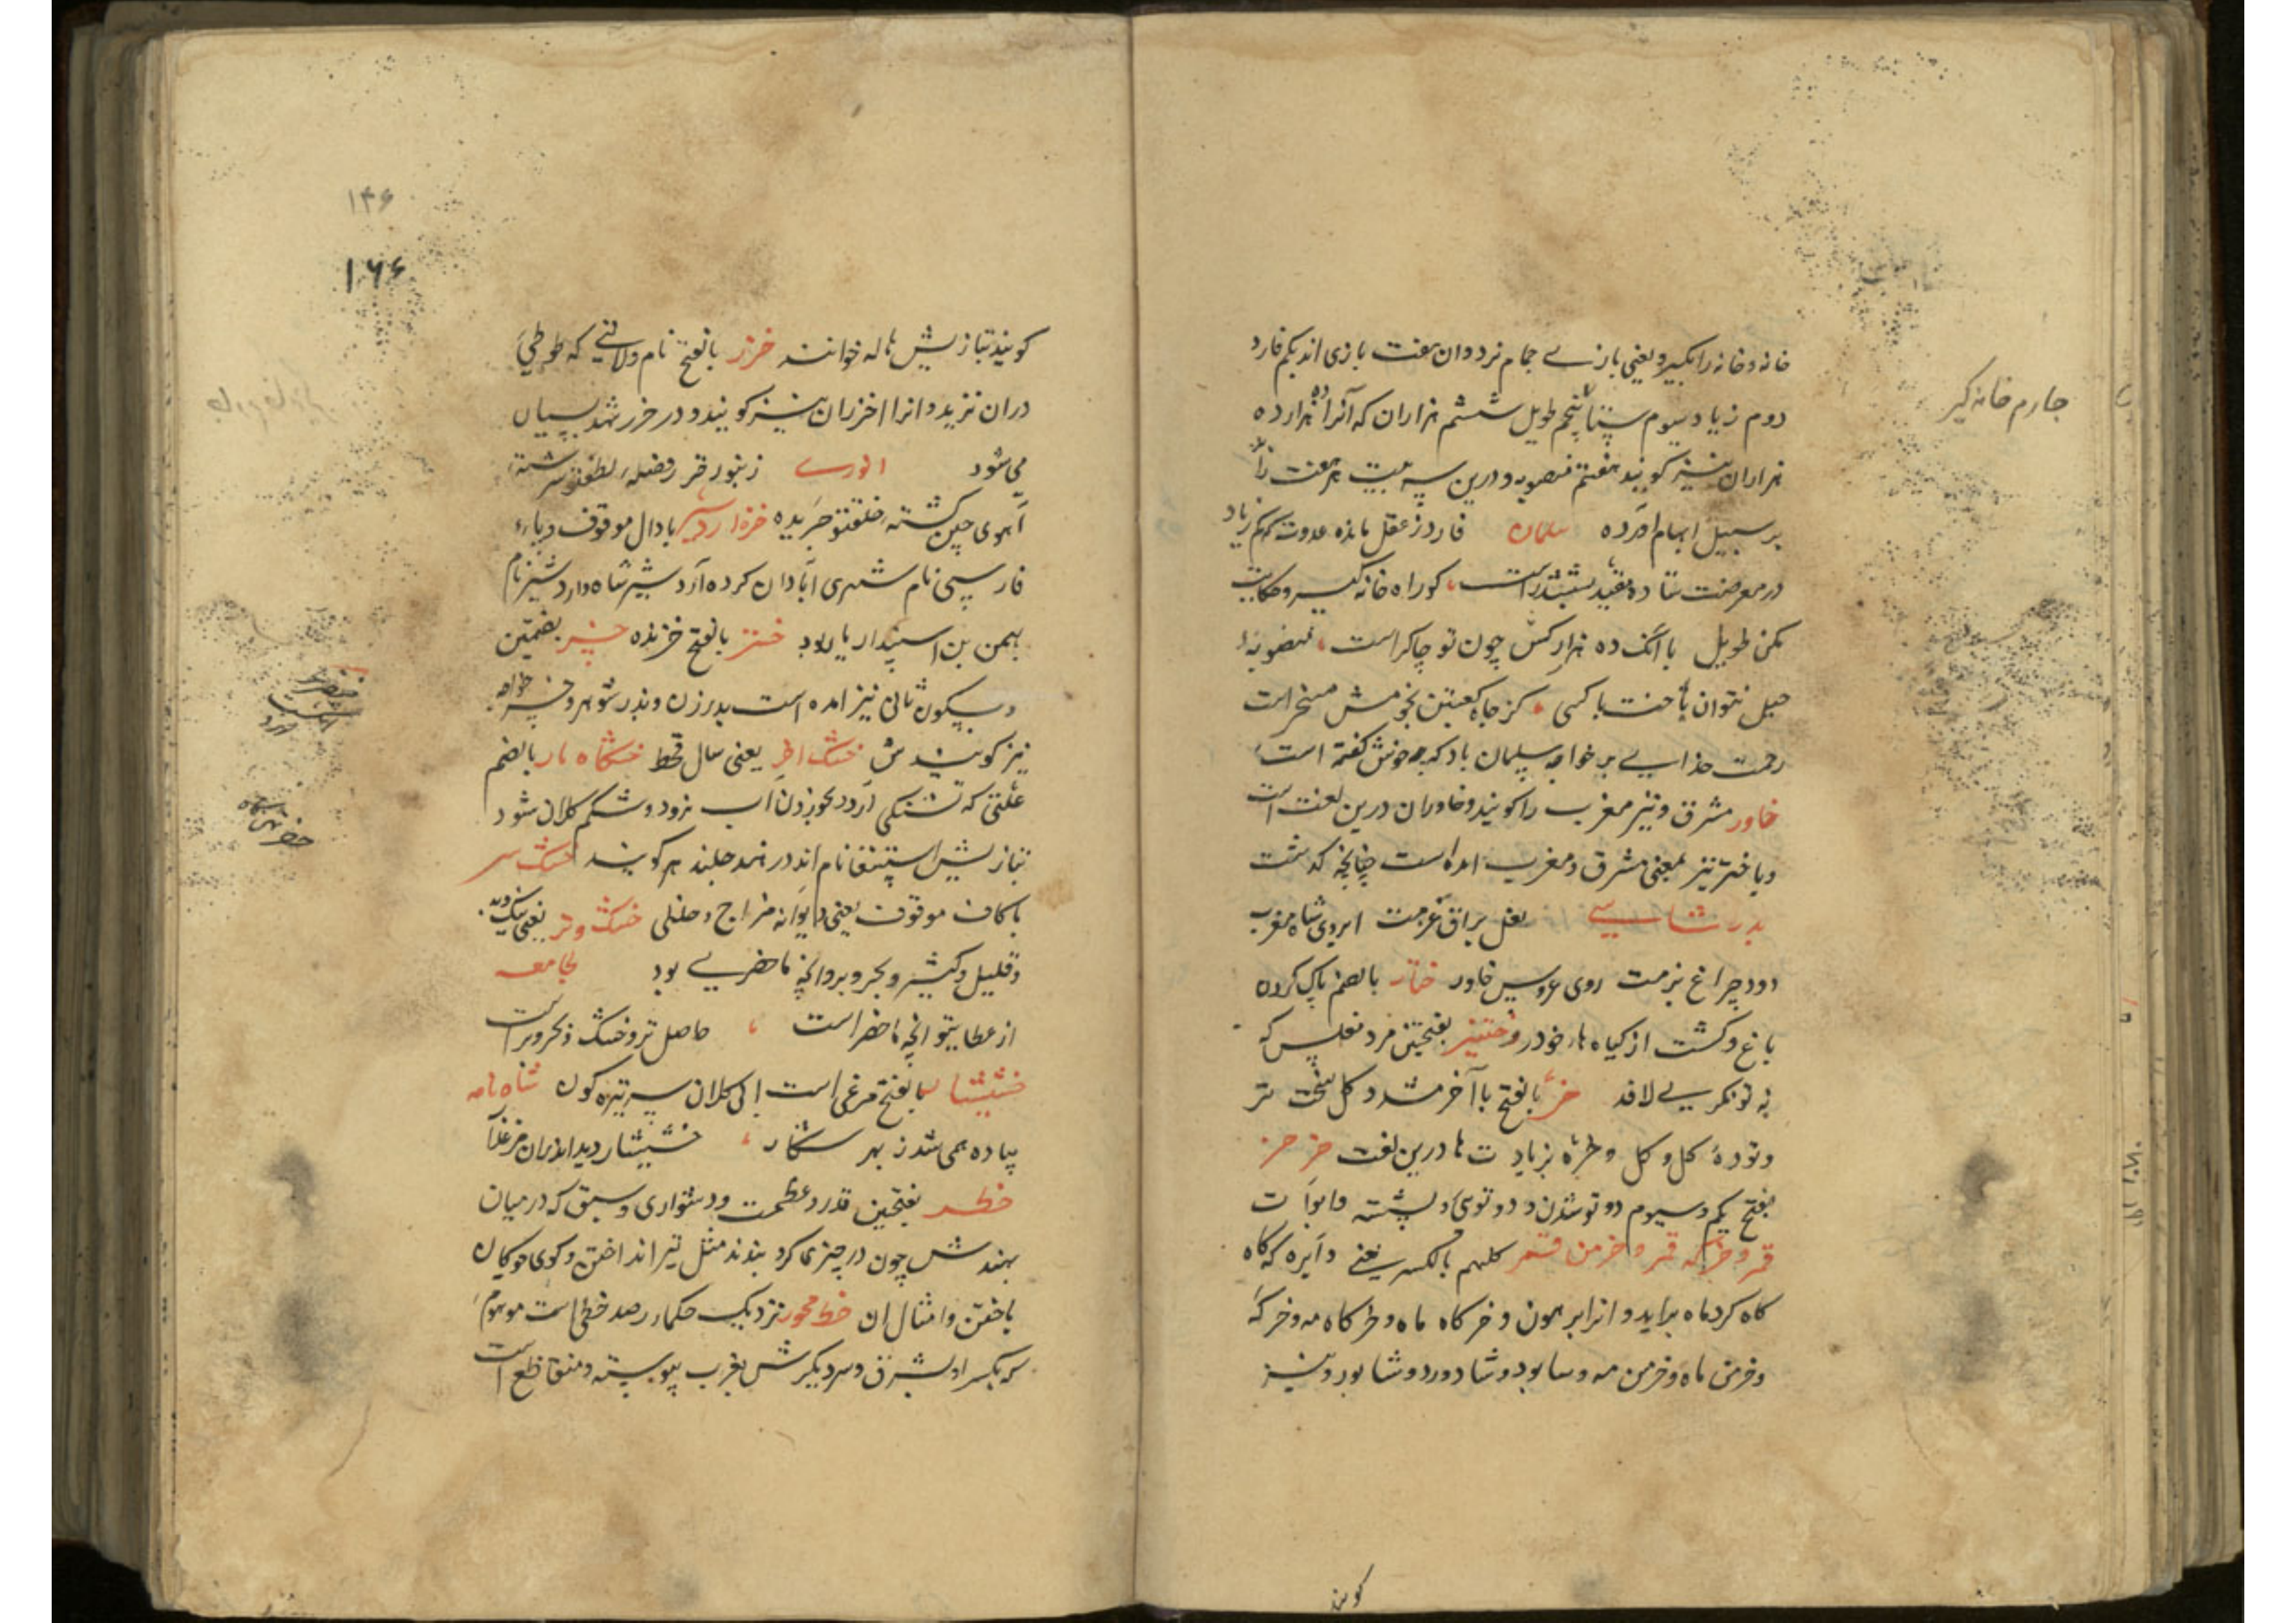 خانه و خانه را نکیرد یعنی بازی جمام نرد و ان هفت بازی اند یکم فارد
دوم زیاد سیوم ستا پنجم طویل ششم هزاران که آنرا ده هزار و ده
هزاران نیز کویند هفتم منصوبه و درین سه بیت هر هفت را
بر سبیل ایهام اورده سلمان فارد ز عقل مانده عدوت کهم زیاد
در معرضت ستاده مقید بششدر است کو راه خانه کیر و حکایت
مکن طویل با آنک ده هزار کس چون تو چاکر است منصوبه
حیل نتوان باخت با کسی کز جاه کعبتین نجومش مسخر است
رحمت خدایی بر خواجه سلمان باد که چه خوش کفته است
خاور مشرق و نیز مغرب را کویند و خاوران درین لغت است
و باختر نیز بمعنی مشرق و مغرب امده است چنانچه کذشت
بدر شاسی نعل براق عزمت ابروی شاه مغرب
دود چراغ بزمت روی عروس خاور ختار بالضم پاک کردن
باغ و کشت از کیاه ها خودرو ختنبر بفتحتین مرد مفلس که
به توبکری لافد خر بالفتح با آخر مشدد کل سخت تر
و تودهٔ کل و کل و خره بزیادت ها درین لغت خر خر
بفتح یکم و سیوم دو تو شدن و دو توی و پشته و ابوات
قمر و خرکه قمر و خرمن قمر کلهم بالکسر یعنی دایره که کاه
کاه کرد ماه براید و انرا برهون و خرکاه ماه و خرکاه مه و خرکه
و خرمن ماه و خرمن مه و سابود و شادورد و شابورد نیز
جارم خانه کیر
کویند
۱۴۶
۱۶۶
کویند بتازیش هاله خوانند خزر بالفتح نام ولایتی که طوطی
دران نزید و انرا اخزران نیز کویند و در خزر شهد بسیار
می شود انوری زنبور قز رفضله لطفتو سرشته
آهوی چین کشته خلقتو چریده خره اردشیر با دال موقوف و یاء
فارسی نام شهری آبادان کرده اردشیر شاه و اردشیر نام
بهمن بن اسپندیار بود خستر بالفتح خزنده خسر بضمتین
و بسکون ثانی نیز امده است پدر زن و پدر شوهر و خسر خواجه
نیز کویندش خشک اخر یعنی سال قحط خشکاه مار بالضم
علتی که تشنکی آرد و بخوردن اب نرود و شکم کلان شود
بتازیش استسقا نام اند در هند جلندهر کویند خشک سر
با کاف موقوف یعنی دیوانه مزاج و حنلی خشک و تر یعنی نیک و بد
و قلیل و کثیر و بحر و بر و انچه ماحضری بود لجامعه
از عطایتو انچه ماحضر است حاصل تر و خشک ز بحر و بر است
خشنشار بالفتح مرغی است ابی کلان سر تیره کون شاه نامه
پیاده همی شد ز بهر شکار خشنشار دید اندران مرغزار
خطر بفتحتین قدر و عظمت و دشواری و سبق که در میان
بهندش چون در چیزی کرو بندند مثل تیر انداختن و کوی و چوکان
باختن و امثال ان خط محور نزدیک حکماء رصد خطی است موهوم
که یکسر او بشرق و سر دیکرش بغرب پیوسته و متقاطع است